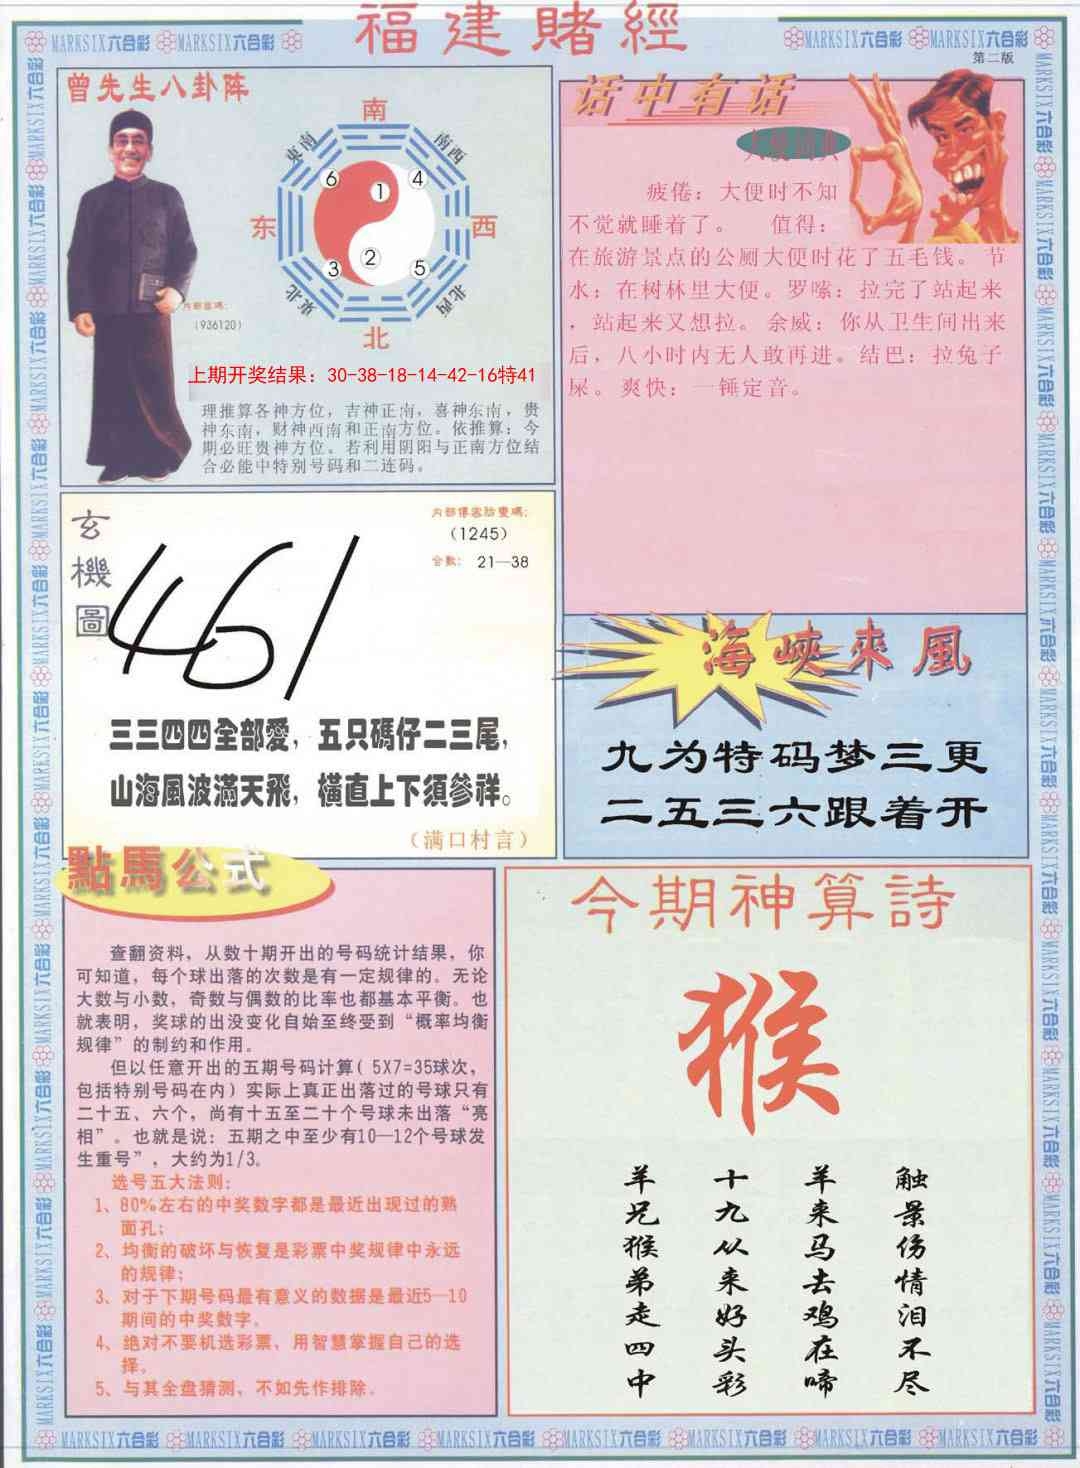 福建賭經
MARKSIX六合彩 MARKSIX六合彩
MARKSIX六合彩 MARKSIX六合彩
第二版
曾先生八卦阵
南
東南
南西
6
1
4
东
西
3
2
5
東北
北西
北
(936120)
上期开奖结果：30-38-18-14-42-16特41
理推算各神方位，吉神正南，喜神东南，贵
神东南，财神西南和正南方位。依推算：今
期必旺贵神方位。若利用阴阳与正南方位结
合必能中特别号码和二连码。
话中有话
疲倦：大便时不知
不觉就睡着了。 值得：
在旅游景点的公厕大便时花了五毛钱。节
水：在树林里大便。罗嗦：拉完了站起来
，站起来又想拉。余威：你从卫生间出来
后，八小时内无人敢再进。结巴：拉兔子
屎。爽快：一锤定音。
玄機圖
（1245）
合数： 21—38
461
三三四四全部愛，五只碼仔二三尾，
山海風波滿天飛，橫直上下須參祥。
（满口村言）
海峽來風
九为特码梦三更
二五三六跟着开
點馬公式
查翻资料，从数十期开出的号码统计结果，你
可知道，每个球出落的次数是有一定规律的。无论
大数与小数，奇数与偶数的比率也都基本平衡。也
就表明，奖球的出没变化自始至终受到“概率均衡
规律”的制约和作用。
但以任意开出的五期号码计算( 5X7=35球次，
包括特别号码在内）实际上真正出落过的号球只有
二十五、六个，尚有十五至二十个号球未出落“亮
相”。也就是说：五期之中至少有10—12个号球发
生重号”，大约为1/3。
选号五大法则：
1、80%左右的中奖数字都是最近出现过的熟
面孔；
2、均衡的破坏与恢复是彩票中奖规律中永远
的规律；
3、对于下期号码最有意义的数据是最近5—10
期间的中奖数字。
4、绝对不要机选彩票，用智慧掌握自己的选
择。
5、与其全盘猜测，不如先作排除。
今期神算詩
猴
触景伤情泪不尽
羊来马去鸡在啼
十九从来好头彩
羊兄猴弟走四中
MARKSIX六合彩 MARKSIX六合彩 MARKSIX六合彩 MARKSIX六合彩 MARKSIX六合彩 MARKSIX六合彩 MARKSIX六合彩 MARKSIX六合彩